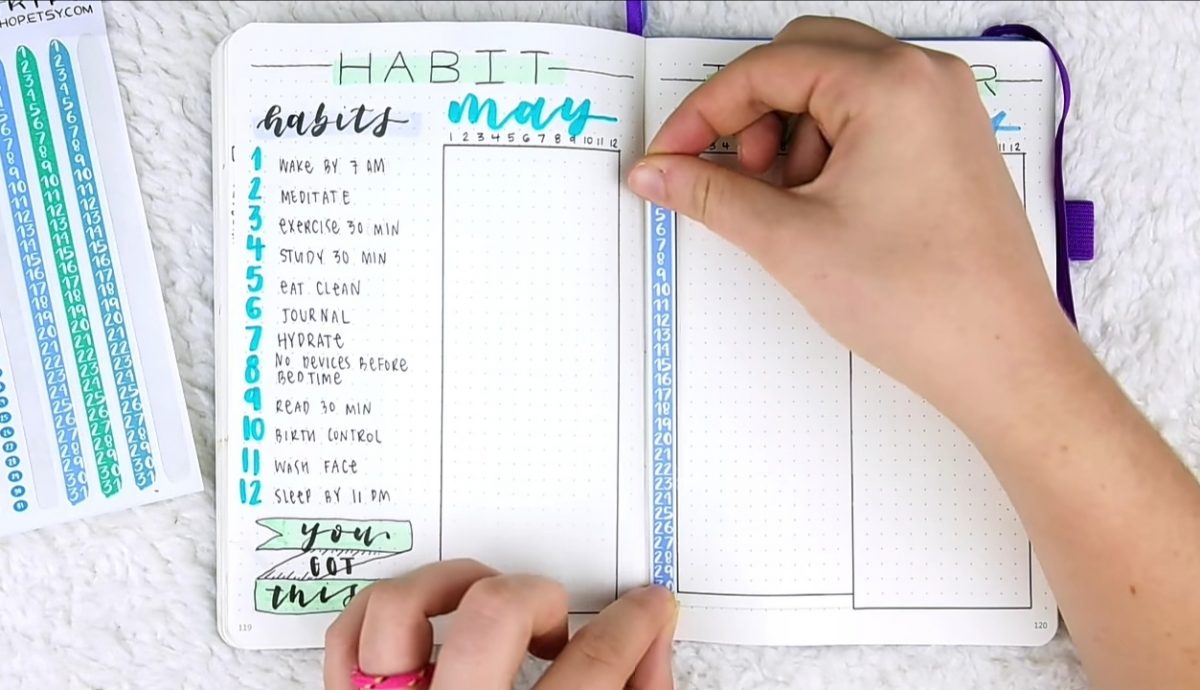 HOP.ETSY.COM
1 2 3 4 5 6 7 8 9 10 11 12 13 14 15 16 17 18 19 20 21 22 23 24 25 26 27 28 29 30 31
1 2 3 4 5 6 7 8 9 10 11 12 13 14 15 16 17 18 19 20 21 22 23 24 25 26 27 28 29 30 31
HABIT
habits
may
1 2 3 4 5 6 7 8 9 10 11 12
1 WAKE BY 7 AM
2 MEDITATE
3 EXERCISE 30 MIN
4 STUDY 30 MIN
5 EAT CLEAN
6 JOURNAL
7 HYDRATE
8 NO DEVICES BEFORE
BEDTIME
9 READ 30 MIN
10 BIRTH CONTROL
11 WASH FACE
12 SLEEP BY 11 PM
you
GOT
this
119
R
3 4
11 12
5
6
7
8
9
10
11
12
13
14
15
16
17
18
19
20
21
22
23
24
25
26
27
28
29
30
120